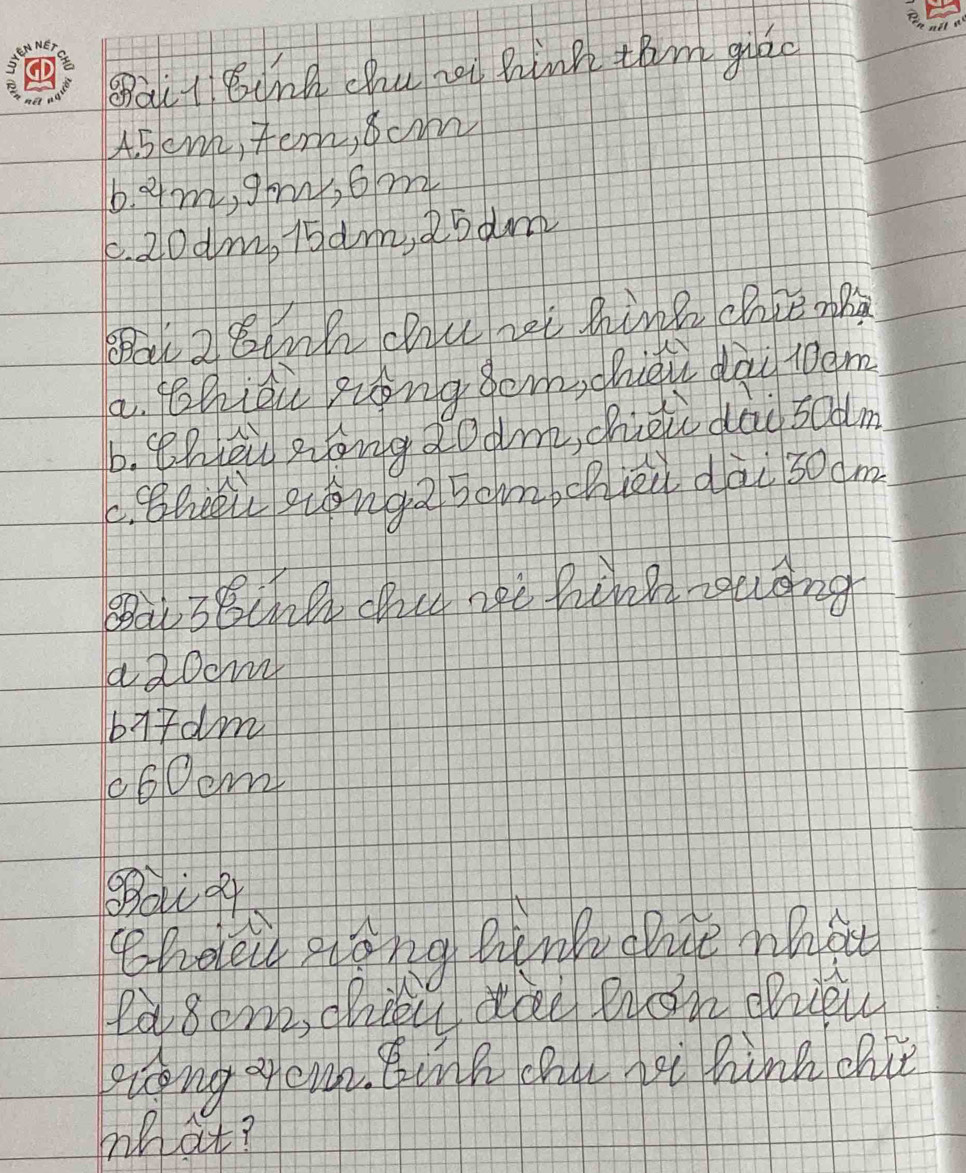 RÈN LUYỆN NÉT CHỮ
GD
Rèn nết người
Rèn nết n
Bài 1: Tính chu vi hình tam giác
A. 5cm, 7cm, 8cm
b. 4m, 9m, 6m
c. 20dm, 15dm, 25dm
Bài 2 Tính chu vi hình chữ nhậ
a. Chiều rộng 8cm, chiều dài 10cm
b. Chiều rộng 20dm, chiều dài 50dm
c. Chiều rộng 25cm, chiều dài 30cm
Bài 3 Tính chu vi hình vuông
a 20cm
b 17dm
c 60cm
Bài 4
Chiều rộng hình chữ nhật
là 8cm, chiều dài hơn chiều
rộng 4cm. Tính chu vi hình chữ
nhật?